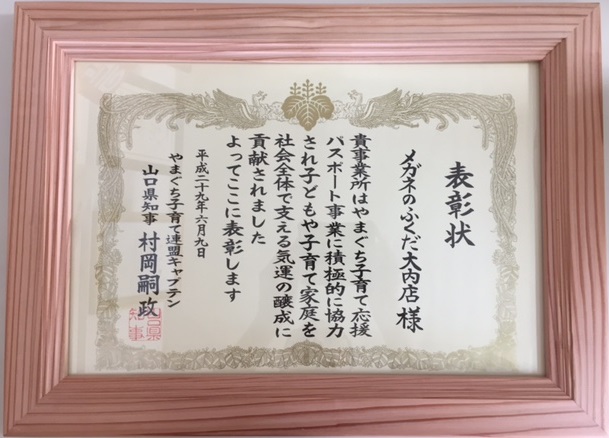 表彰状
メガネのふくだ大内店 様
貴事業所はやまぐち子育て応援
パスポート事業に積極的に協力
され子どもや子育て家庭を
社会全体で支える気運の醸成に
貢献されました
よってここに表彰します
平成二十九年六月九日
やまぐち子育て連盟キャプテン
山口県知事 村岡嗣政
山口県
知事